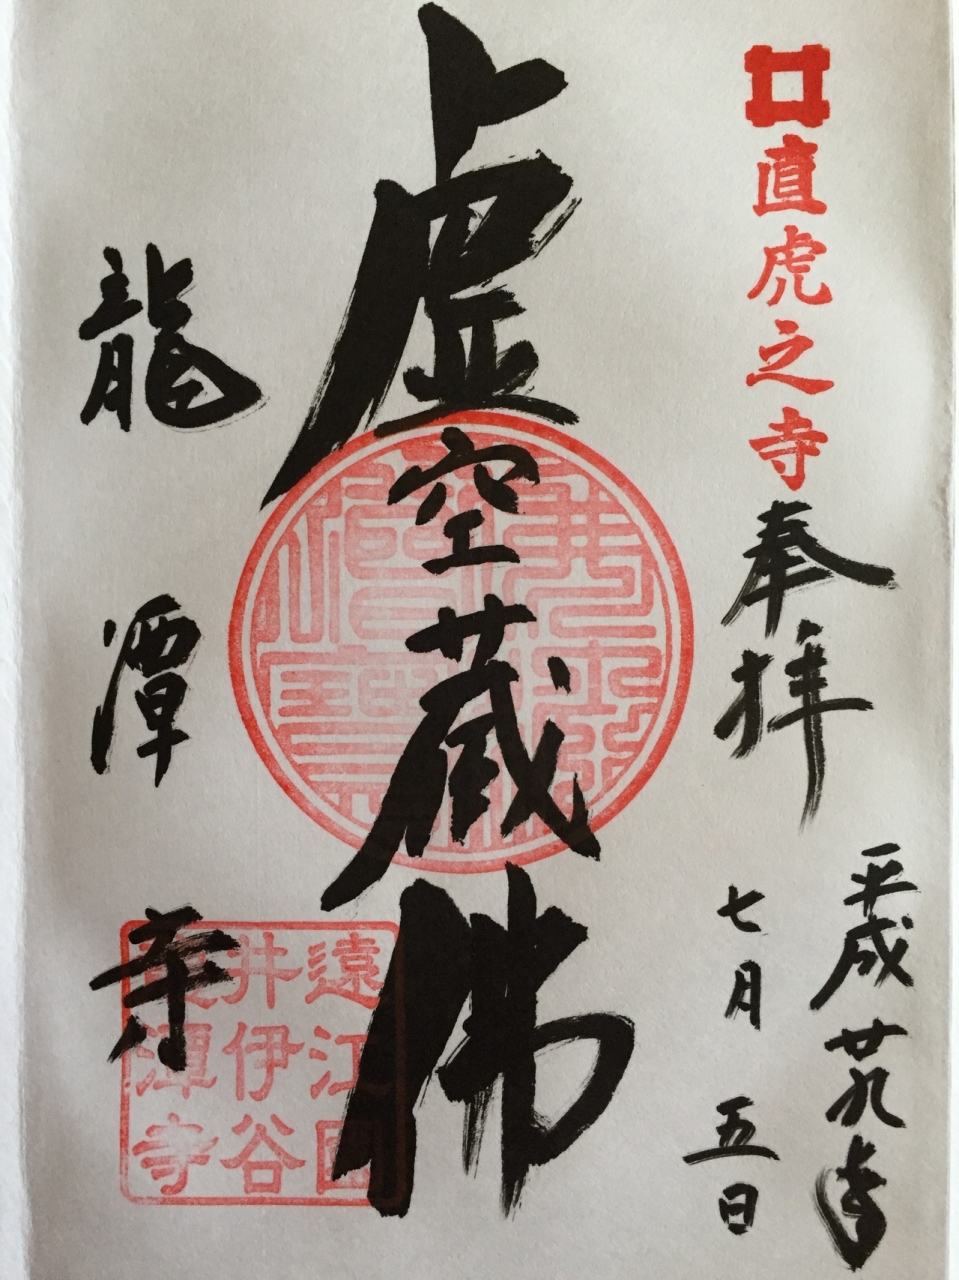 直虎之寺
奉拝
平成廿九年
七月五日
虚空蔵佛
龍潭寺
遠江國
井伊谷
龍潭寺